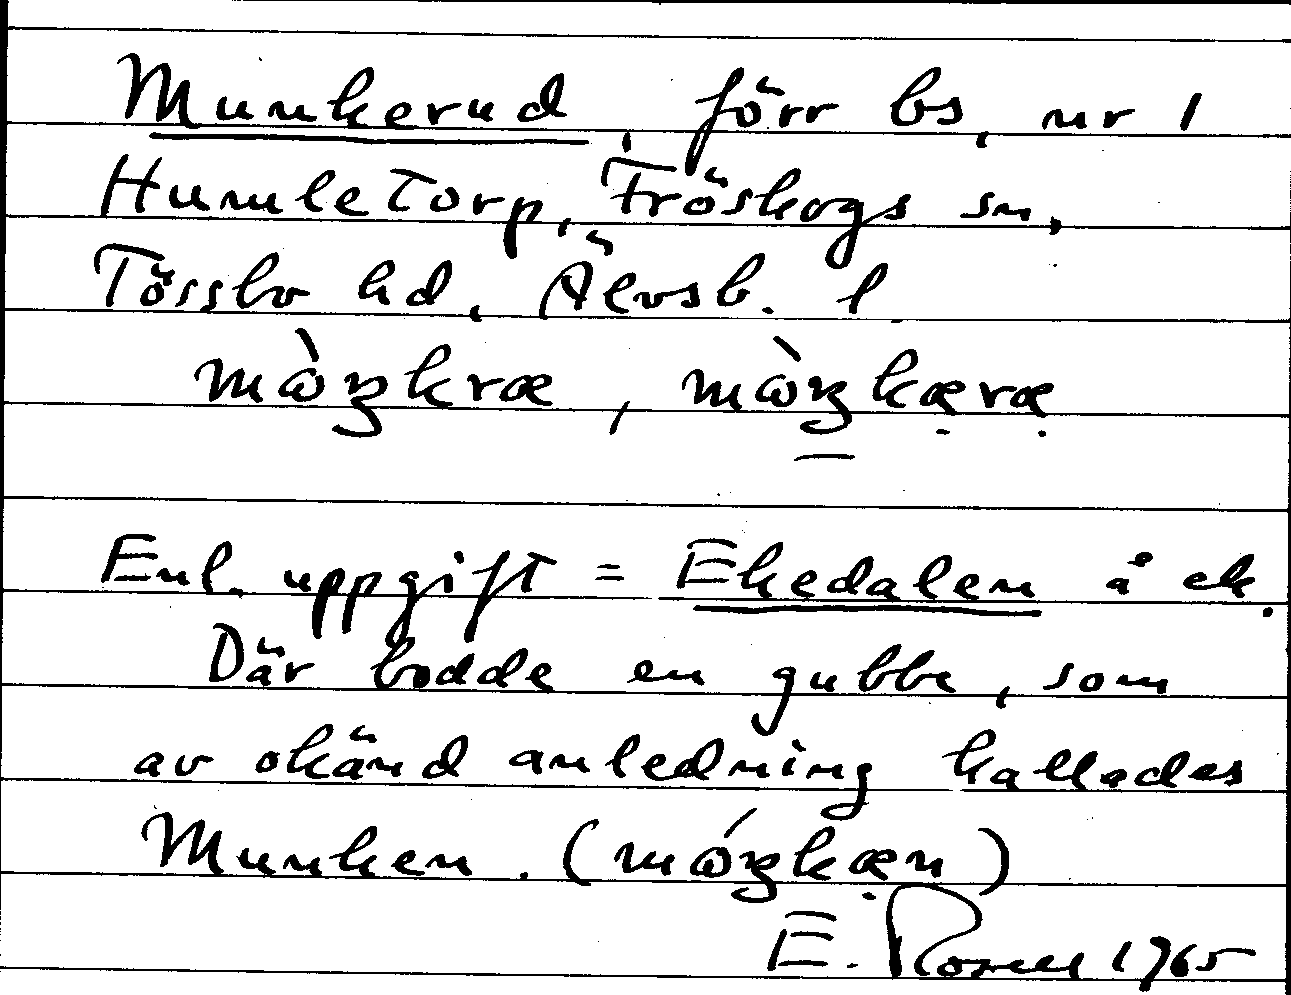 Munkerud, förr bs, nr 1
Humletorp, Fröskogs sn,
Tössbo hd, Älvsb. l.
mòŋkræ, mòŋkæ̣ræ̣
Enl. uppgift = Ekedalen å ek.
Där bodde en gubbe, som
av okänd anledning kallades
Munken. (móŋkæ̣n)
E. Rosell 1965